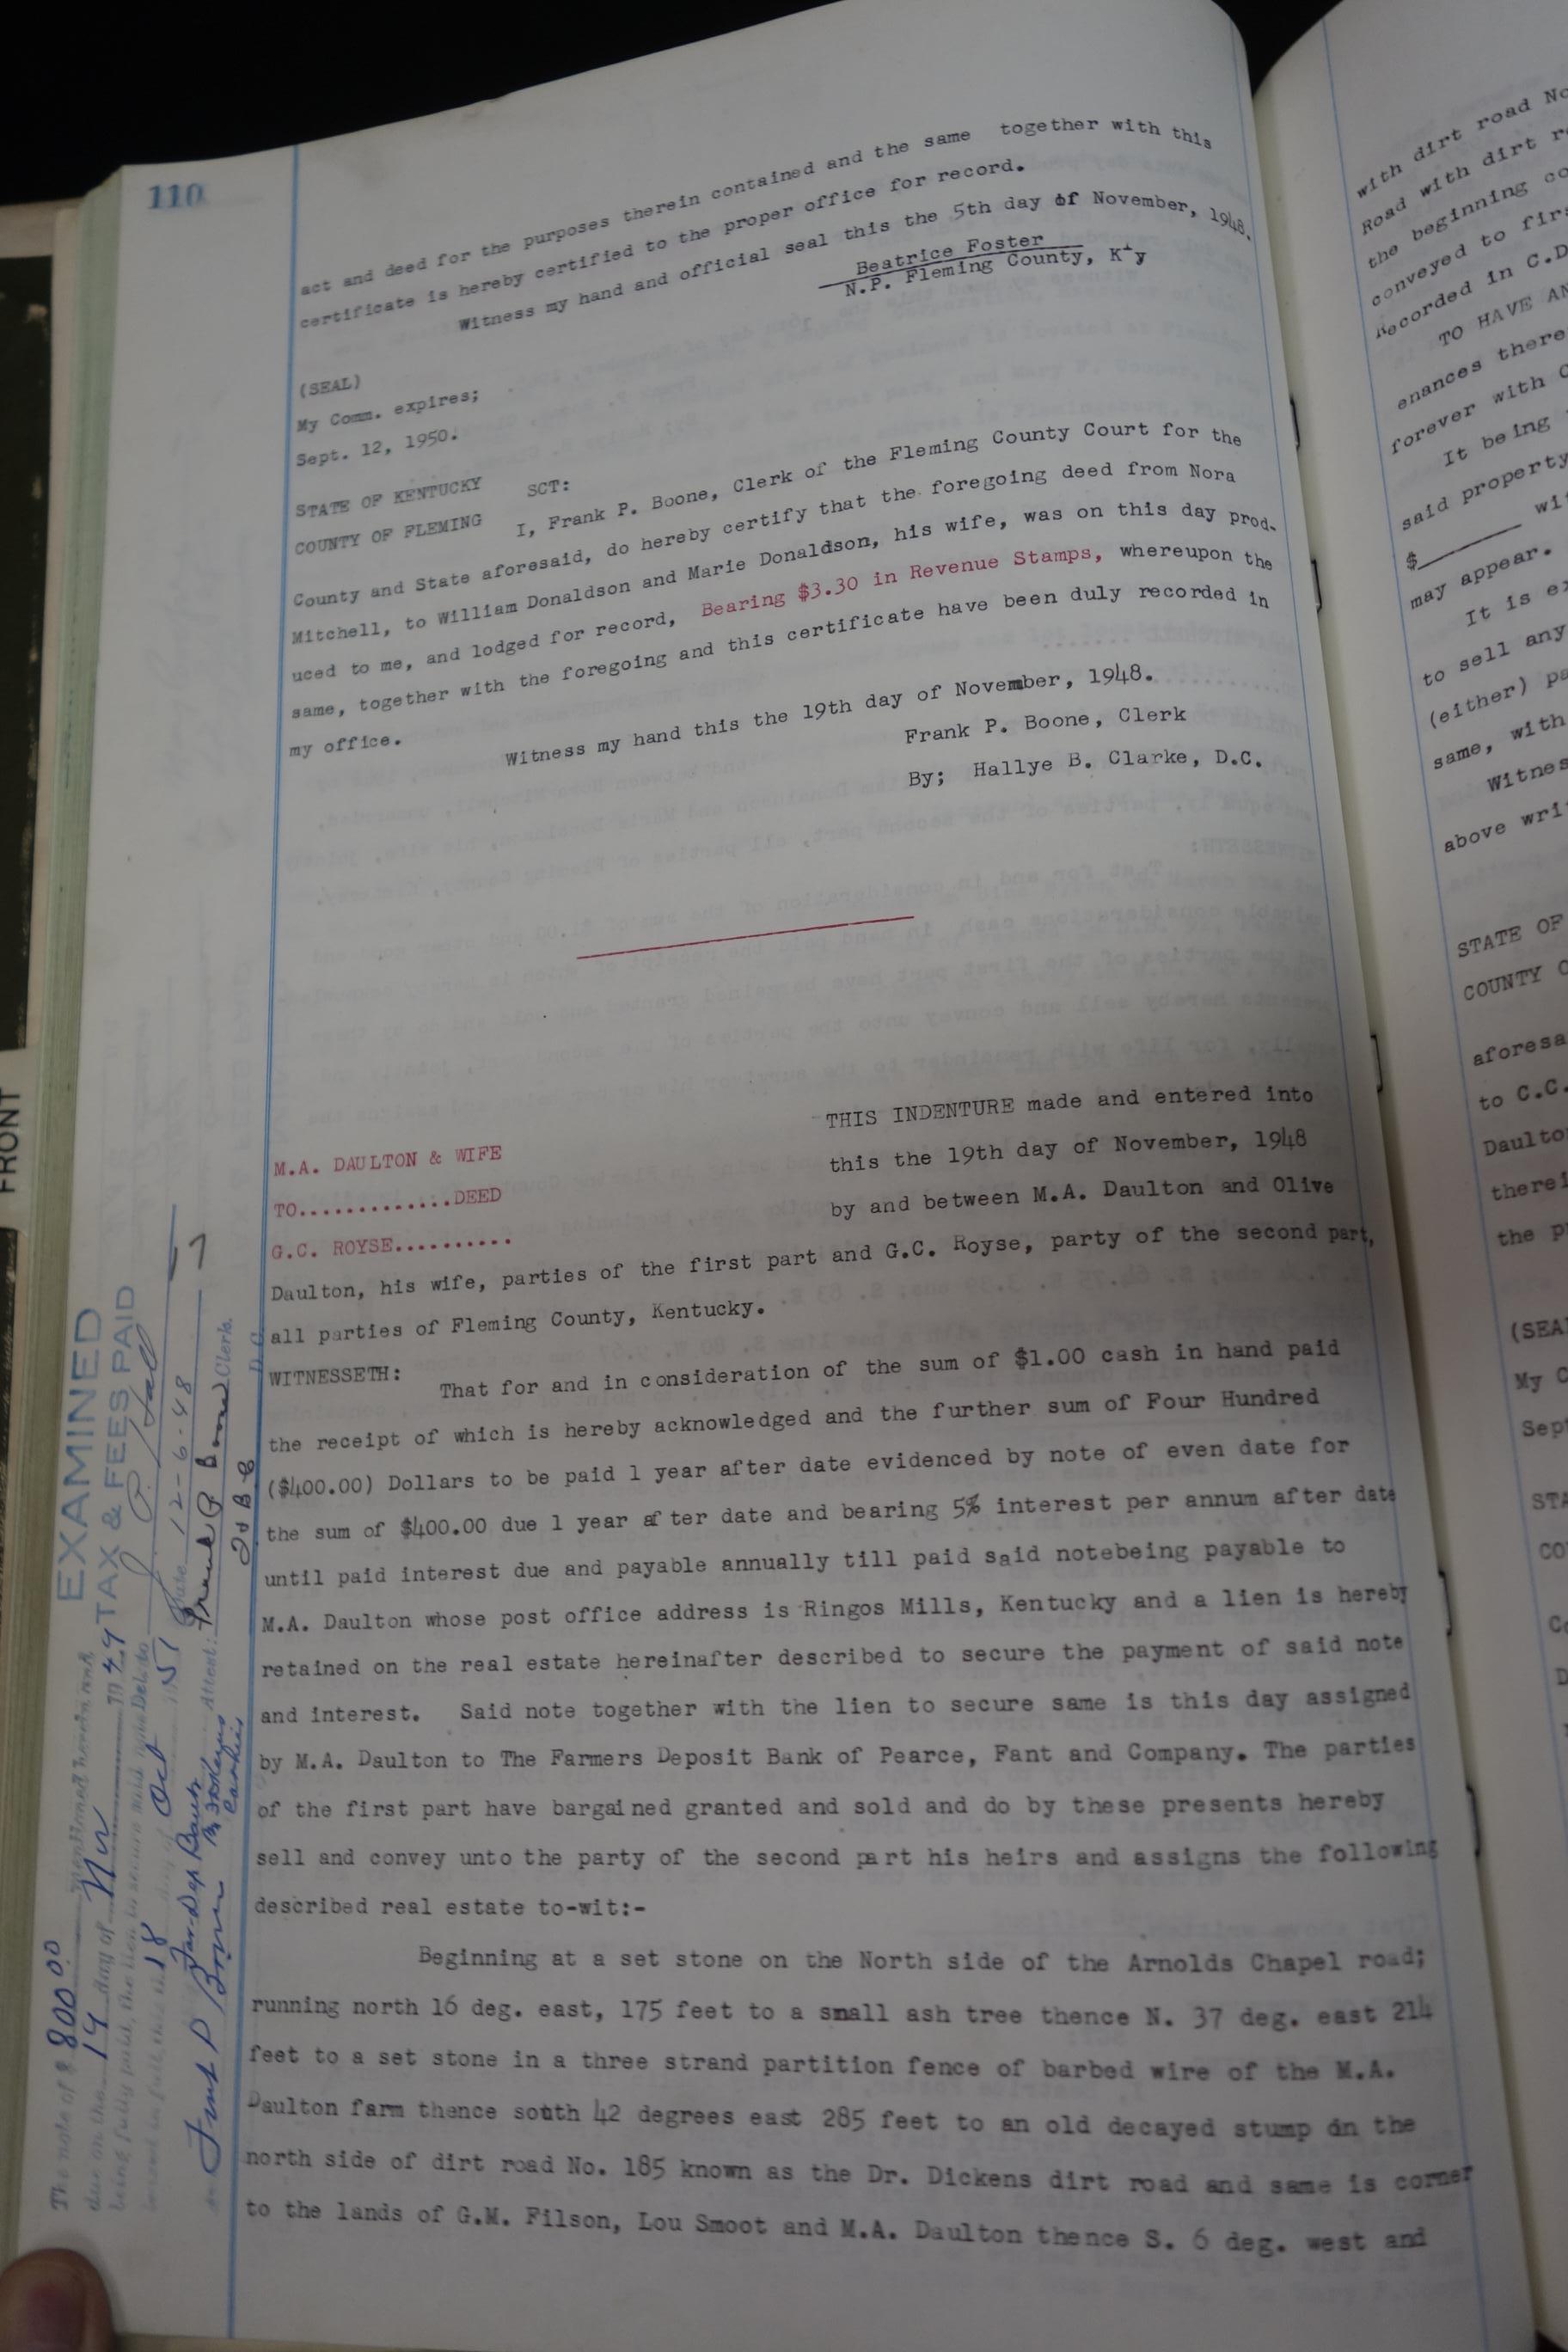 110
act and deed for the purposes therein contained and the same together with this
certificate is hereby certified to the proper office for record.
Witness my hand and official seal this the 5th day of November, 1948.
Beatrice Foster
N.P. Fleming County, Kty
(SEAL)
My Comm. expires;
Sept. 12, 1950.
STATE OF KENTUCKY
SCT:
COUNTY OF FLEMING
I, Frank P. Boone, Clerk of the Fleming County Court for the
County and State aforesaid, do hereby certify that the foregoing deed from Nora
Mitchell, to William Donaldson and Marie Donaldson, his wife, was on this day prod-
uced to me, and lodged for record, Bearing $3.30 in Revenue Stamps, whereupon the
same, together with the foregoing and this certificate have been duly recorded in
my office.
Witness my hand this the 19th day of November, 1948.
Frank P. Boone, Clerk
By; Hallye B. Clarke, D.C.
M.A. DAULTON & WIFE
TO.............DEED
G.C. ROYSE..........
THIS INDENTURE made and entered into
this the 19th day of November, 1948
by and between M.A. Daulton and Olive
Daulton, his wife, parties of the first part and G.C. Royse, party of the second part,
all parties of Fleming County, Kentucky.
WITNESSETH:
That for and in consideration of the sum of $1.00 cash in hand paid
the receipt of which is hereby acknowledged and the further sum of Four Hundred
($400.00) Dollars to be paid 1 year after date evidenced by note of even date for
the sum of $400.00 due 1 year af ter date and bearing 5% interest per annum after date
until paid interest due and payable annually till paid said notebeing payable to
M.A. Daulton whose post office address is Ringos Mills, Kentucky and a lien is hereby
retained on the real estate hereinafter described to secure the payment of said note
and interest. Said note together with the lien to secure same is this day assigned
by M.A. Daulton to The Farmers Deposit Bank of Pearce, Fant and Company. The parties
of the first part have bargained granted and sold and do by these presents hereby
sell and convey unto the party of the second part his heirs and assigns the following
described real estate to-wit:-
Beginning at a set stone on the North side of the Arnolds Chapel road;
running north 16 deg. east, 175 feet to a small ash tree thence N. 37 deg. east 214
feet to a set stone in a three strand partition fence of barbed wire of the M.A.
Daulton farm thence south 42 degrees east 285 feet to an old decayed stump on the
north side of dirt road No. 185 known as the Dr. Dickens dirt road and same is corner
to the lands of G.M. Filson, Lou Smoot and M.A. Daulton thence S. 6 deg. west and
EXAMINED
TAX & FEES PAID
Date 12-6-48
The note of $ 800 00 mentioned herein and
due on the 19 day of Nov 19 49
being fully paid, the lien
18 Oct 51
Far Dep Bank
Cashier
Attest: Frank P Boone Clerk
D.C.
FRONT
with dirt road No
Road with dirt r
the beginning co
conveyed to firs
Recorded in C.D
TO HAVE AN
enances there
forever with C
It being
said property
$______ wi
may appear.
It is ex
to sell any
(either) pa
same, with
Witnes
above wri
STATE OF
COUNTY O
aforesa
to C.C.
Daulto
therei
the p
(SEA
My C
Sep
STA
CO